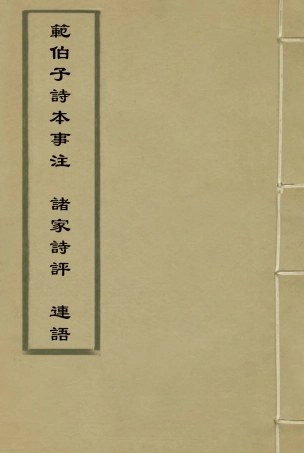 範伯子詩本事注 諸家詩評 連語